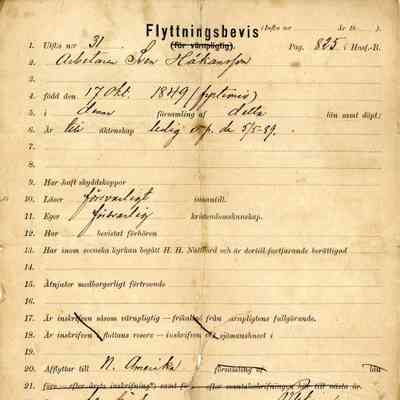 Flyttningsbevis (Införes n:o År 18 ).
(för värnpligtig).
1. Utfl:s n:o 31. Pag. 825 i Husf.-B.
2. Arbetaren Sven Håkansson
3.
4. född den 17 Okt. 1849 (fyrationio)
5. i denna församling af detta län samt döpt;
6. är till äktenskap ledig
7.
8.
9. Har haft skyddskoppor
10. Läser försvarligt innantill.
11. Eger försvarlig kristendomskunskap.
12. Har bevistat förhören
13. Har inom svenska kyrkan begått H. H. Nattvard och är dertill fortfarande berättigad
14.
15. Åtnjuter medborgerligt förtroende
16.
17. Är inskrifven såsom värnpligtig — frikallad från värnpligtens fullgörande.
18. Är inskrifven i flottans reserv — inskrifven vid sjömanshuset i
19.
20. Afflyttar till N. Amerika församling af län
21.